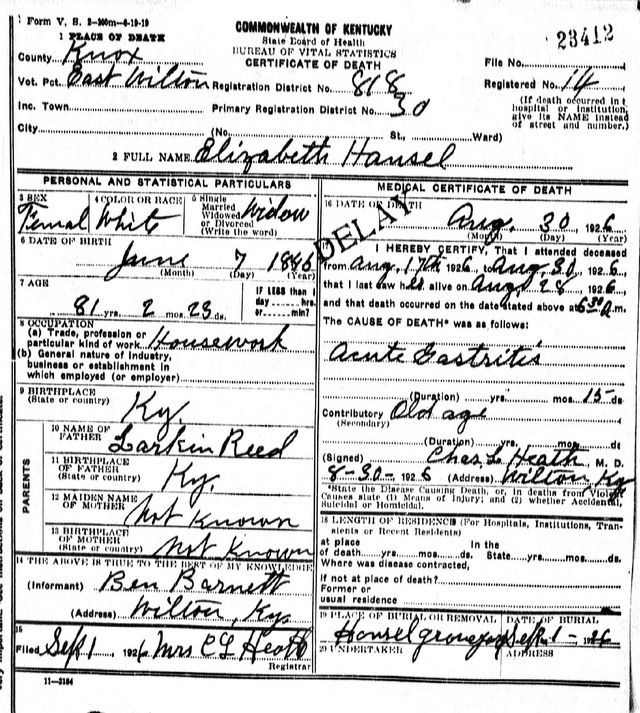 Form V. S. 2-300m-6-19-19
COMMONWEALTH OF KENTUCKY
State Board of Health
BUREAU OF VITAL STATISTICS
CERTIFICATE OF DEATH
23412
1 PLACE OF DEATH
County Knox
File No.
Vot. Pct. East Wilton Registration District No. 818
Registered No. 14
Inc. Town Primary Registration District No. 30
(If death occurred in
hospital or institution,
give its NAME instead
of street and number.)
City (No. St., Ward)
2 FULL NAME Elizabeth Hansel
PERSONAL AND STATISTICAL PARTICULARS
3 SEX Femal
4 COLOR OR RACE White
5 Single
Married
Widowed
or Divorced
(Write the word)
Widow
6 DATE OF BIRTH
June 7 1846
(Month) (Day) (Year)
7 AGE
81 yrs. 2 mos. 23 ds.
IF LESS than 1
day hrs.
or min?
8 OCCUPATION
(a) Trade, profession or
particular kind of work Housework
(b) General nature of Industry,
business or establishment in
which employed (or employer)
9 BIRTHPLACE
(State or country) Ky.
PARENTS
10 NAME OF
FATHER Larkin Reed
11 BIRTHPLACE
OF FATHER
(State or country) Ky.
12 MAIDEN NAME
OF MOTHER Not Known
13 BIRTHPLACE
OF MOTHER
(State or country) Not Known
14 THE ABOVE IS TRUE TO THE BEST OF MY KNOWLEDGE
(Informant) Ben Barnett
(Address) Wilton, Ky
15
Filed Sept 1, 1926 Mrs C L Heath
Registrar
11-3184
MEDICAL CERTIFICATE OF DEATH
DELAY
16 DATE OF DEATH
Aug. 30 1926
(Month) (Day) (Year)
I HEREBY CERTIFY, That I attended deceased
from Aug, 17th 1926, to Aug 30, 1926,
that I last saw her alive on Aug, 28, 1926
and that death occurred on the date stated above at 6 30 a.m.
The CAUSE OF DEATH* was as follows:
Acute Gastritis
(Duration) yrs. mos. 15 ds
Contributory Old age
(Secondary)
(Duration) yrs. mos. ds
(Signed) Chas L Heath, M. D.
8-30-1926 (Address) Wilton Ky
*State the Disease Causing Death, or, in deaths from Violent
Causes state (1) Means of Injury; and (2) whether Accidental,
Suicidal or Homicidal.
18 LENGTH OF RESIDENCE (For Hospitals, Institutions, Tran-
sients or Recent Residents)
at place In the
of death yrs. mos. ds. State yrs. mos. ds.
Where was disease contracted,
if not at place of death?
Former or
usual residence
19 PLACE OF BURIAL OR REMOVAL DATE OF BURIAL
Hansel graveyard Sept. 1- 1926
20 UNDERTAKER ADDRESS